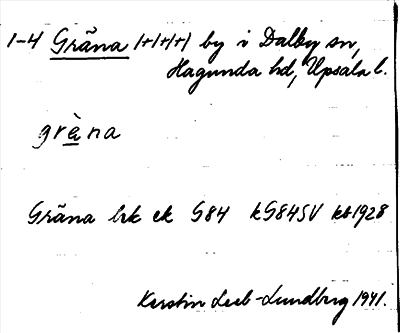 1-4 Gräna 1+1+1+1 by i Dalby sn,
Hagunda hd, Upsala l.
grèna
Gräna brk ek G84 kG84SV kb1928
Kerstin Leeb-Lundberg 1941.